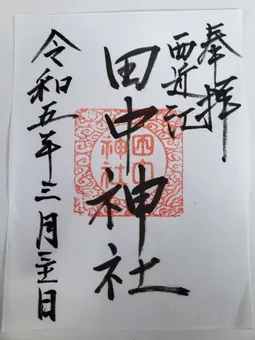 奉拝
西近江
田中神社
令和五年三月三十日
田中
神社